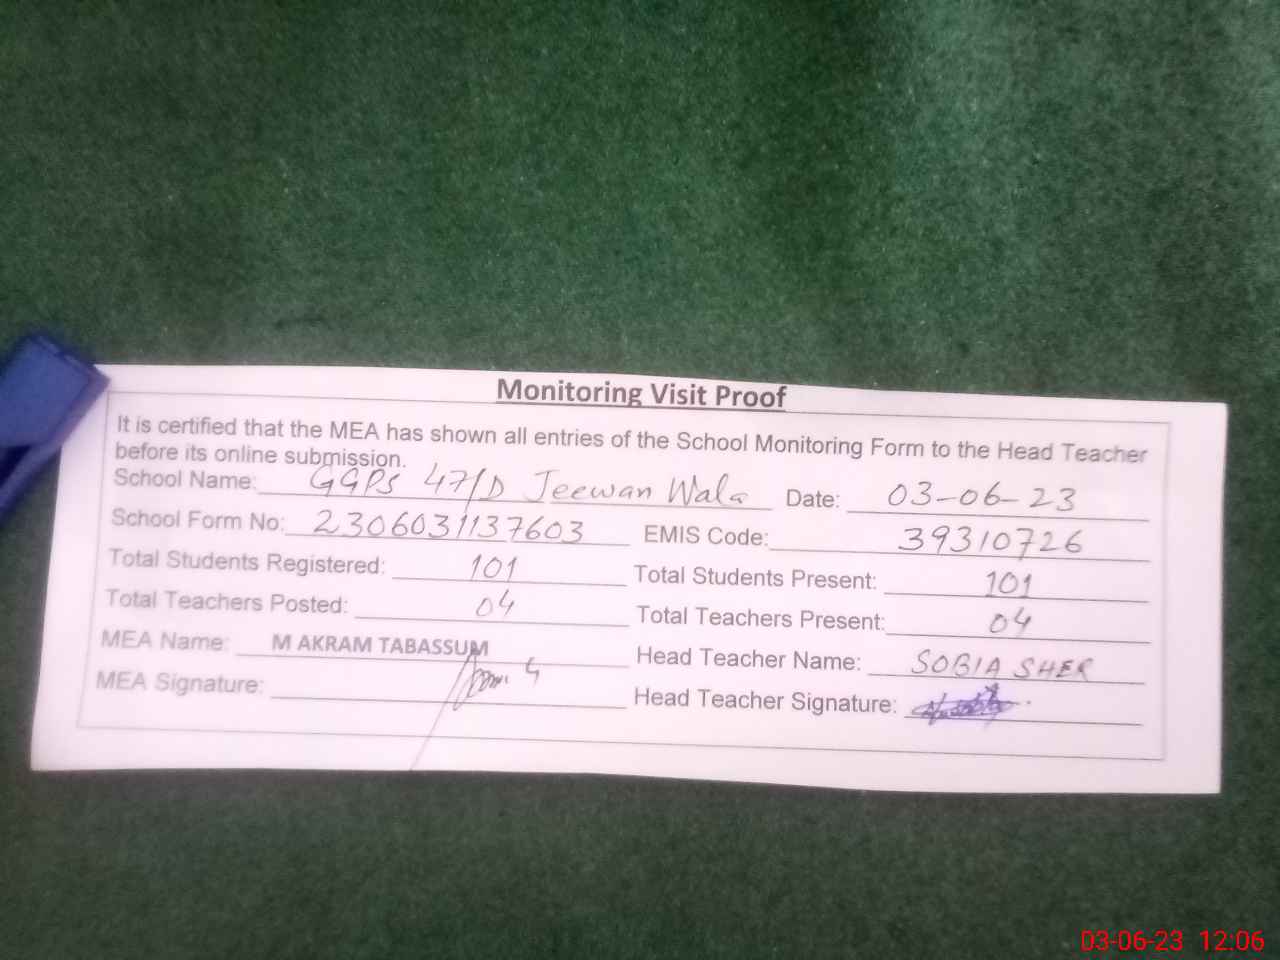 Monitoring Visit Proof
It is certified that the MEA has shown all entries of the School Monitoring Form to the Head Teacher
before its online submission.
School Name: GGPS 47/D Jeewan Wala Date: 03-06-23
School Form No: 2306031137603 EMIS Code: 39310726
Total Students Registered: 101 Total Students Present: 101
Total Teachers Posted: 04 Total Teachers Present: 04
MEA Name: M AKRAM TABASSUM Head Teacher Name: SOBIA SHER
MEA Signature: Head Teacher Signature:
03-06-23 12:06